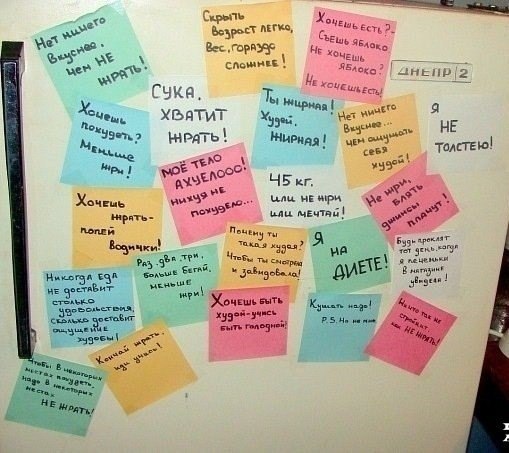 Нет ничего
вкуснее,
чем НЕ
ЖРАТЬ!
Скрыть
возраст легко,
Вес, гораздо
сложнее!
Хочешь есть?-
Съешь яблоко
Не хочешь
яблоко?
Не хочешь есть!
ДНЕПР 2
Хочешь
похудеть?
Меньше
жри!
СУКА,
ХВАТИТ
ЖРАТЬ!
Ты жирная!
Худей,
ЖИРНАЯ!
Нет ничего
вкуснее...
чем ощущать
себя
худой!
Я
НЕ
ТОЛСТЕЮ!
МОЁ ТЕЛО
АХУЕЛООО!
нихуя не
похудело...
45 кг.
или не жри
или мечтай!
Не жри,
БЛЯТЬ
джинсы
плачут!
Хочешь
жрать-
попей
водички!
Раз, два, три,
больше бегай,
меньше
жри!
Почему ты
такая худая?
Чтобы ты смотрела
и завидовала!
Я
НА
ДИЕТЕ!
Будь проклят
тот день, когда
я печеньки
в магазине
увидела!
Никогда ЕДА
НЕ ДОСТАВИТ
столько
удовольствия,
сколько доставит
ощущение
худобы!
Хочешь быть
худой-учись
быть голодной!
Кушать надо!
P.S. Но не мне
Ничто так не
стройнит,
как НЕ ЖРАТЬ!
Кончай жрать,
иди учись!
Чтобы в некоторых
местах похудеть,
надо в некоторых
местах
НЕ ЖРАТЬ!